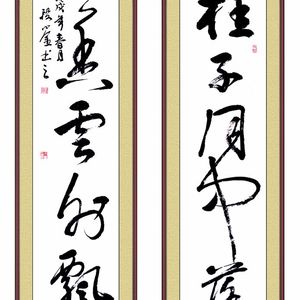 桂子月中落
天香雲外飄
戊戌年春月